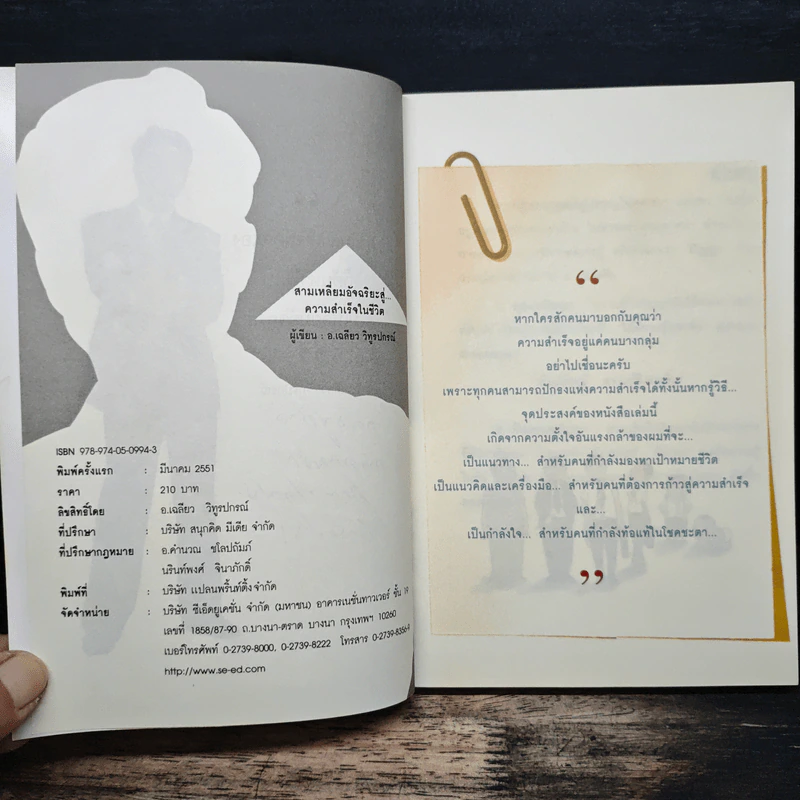 สามเหลี่ยมอัจฉริยะสู่...
ความสำเร็จในชีวิต
ผู้เขียน : อ.เฉลียว วิทูรปกรณ์
ISBN 978-974-05-0994-3
พิมพ์ครั้งแรก : มีนาคม 2551
ราคา : 210 บาท
ลิขสิทธิ์โดย : อ.เฉลียว วิทูรปกรณ์
ที่ปรึกษา : บริษัท สนุกคิด มีเดีย จำกัด
ที่ปรึกษากฎหมาย : อ.คำนวณ ชโลปถัมภ์
นรินท์พงศ์ จินาภักดิ์
พิมพ์ที่ : บริษัท แปลนพริ้นท์ติ้ง จำกัด
จัดจำหน่าย : บริษัท ซีเอ็ดยูเคชั่น จำกัด (มหาชน) อาคารเนชั่นทาวเวอร์ ชั้น 19
เลขที่ 1858/87-90 ถ.บางนา-ตราด บางนา กรุงเทพฯ 10260
เบอร์โทรศัพท์ 0-2739-8000, 0-2739-8222 โทรสาร 0-2739-8356-9
http://www.se-ed.com
“
หากใครสักคนมาบอกกับคุณว่า
ความสำเร็จอยู่แค่คนบางกลุ่ม
อย่าไปเชื่อนะครับ
เพราะทุกคนสามารถปักธงแห่งความสำเร็จได้ทั้งนั้นหากรู้วิธี...
จุดประสงค์ของหนังสือเล่มนี้
เกิดจากความตั้งใจอันแรงกล้าของผมที่จะ...
เป็นแนวทาง... สำหรับคนที่กำลังมองหาเป้าหมายชีวิต
เป็นแนวคิดและเครื่องมือ... สำหรับคนที่ต้องการก้าวสู่ความสำเร็จ
และ...
เป็นกำลังใจ... สำหรับคนที่กำลังท้อแท้ในโชคชะตา...
”